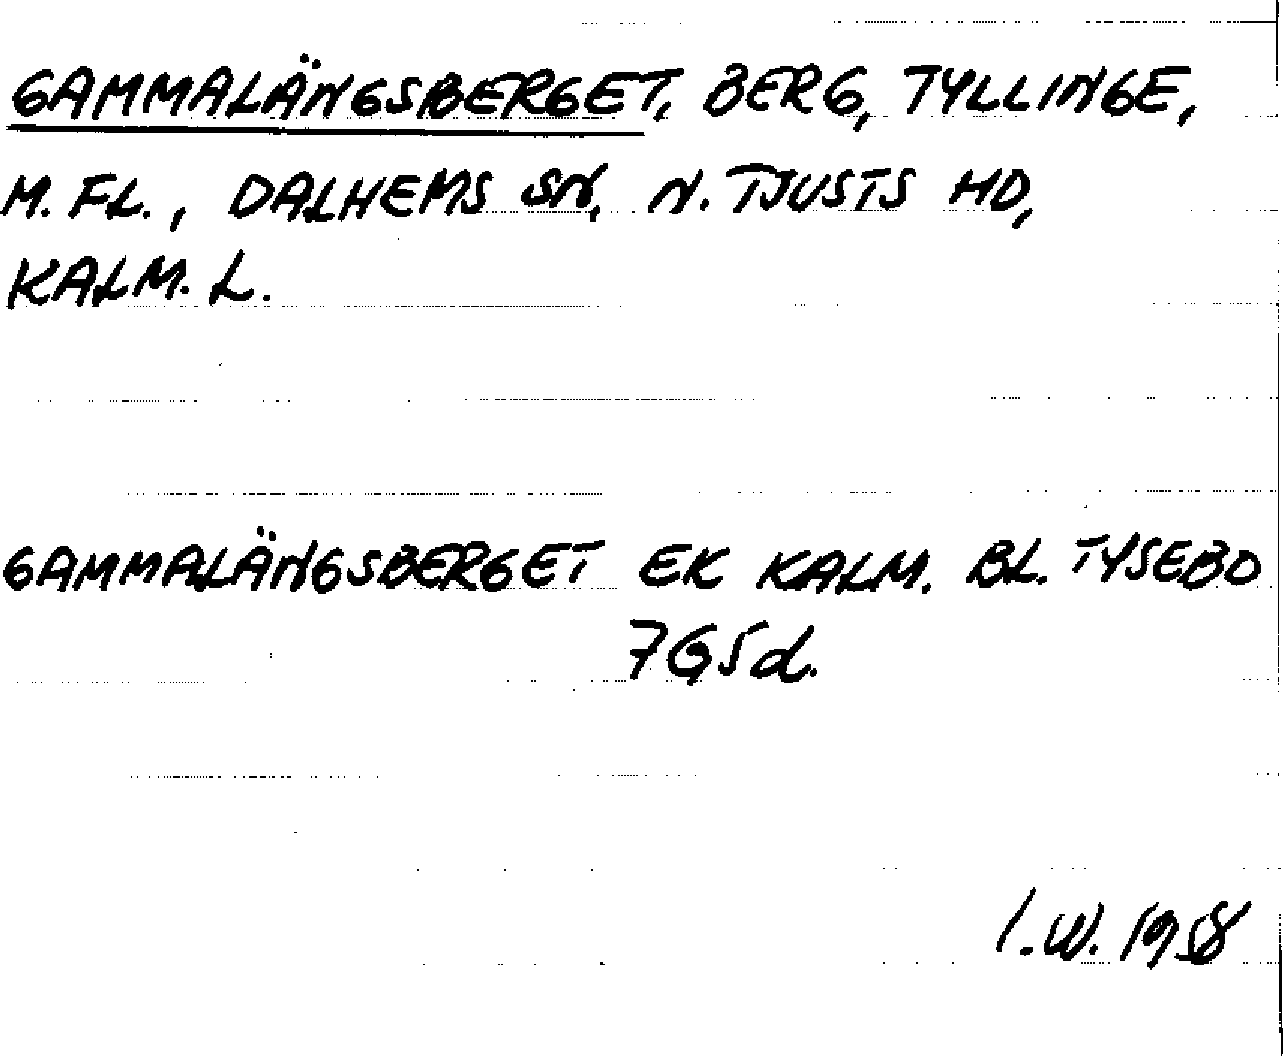 GAMMALÄNGSBERGET, BERG, TYLLINGE,
M. FL., DALHEMS SN, N. TJUSTS HD,
KALM. L.
GAMMALÄNGSBERGET EK KALM. BL. TYSEBO
7G5d.
I.W. 1958